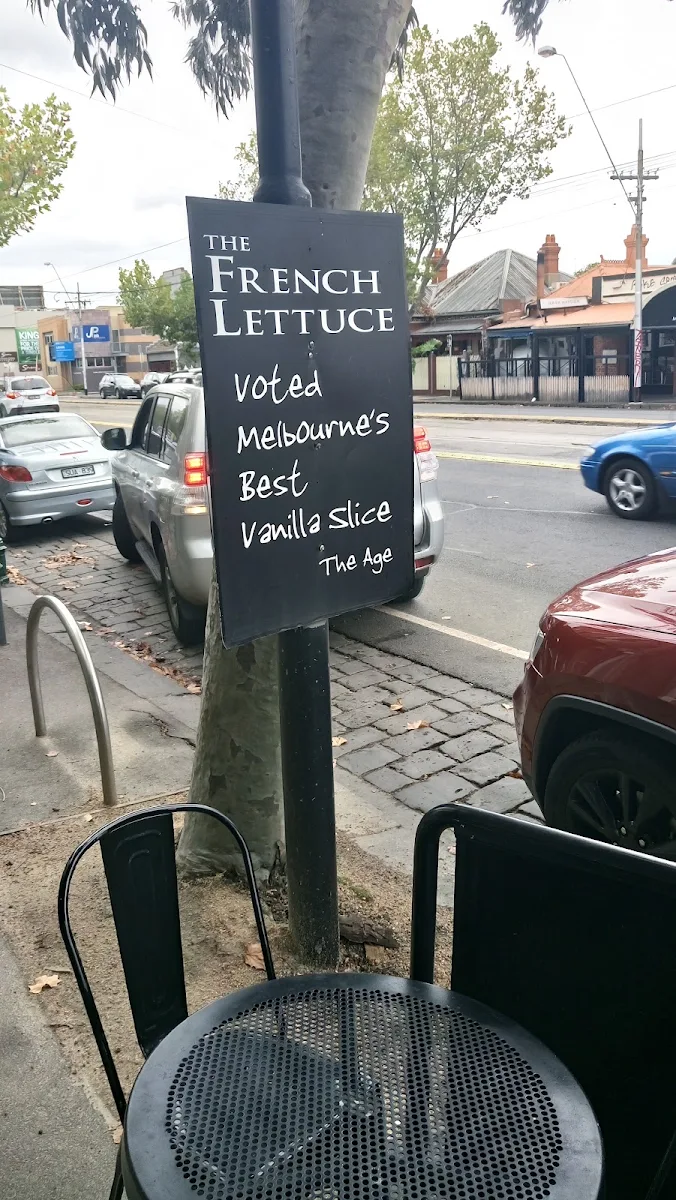 THE
FRENCH
LETTUCE
Voted
Melbourne's
Best
Vanilla Slice
The Age
KING
JP